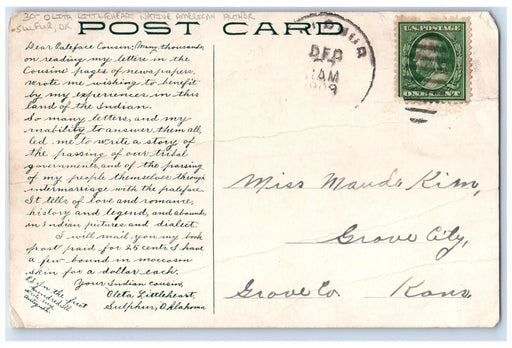 30- OLETA LITTLEHEART NATIVE AMERICAN AUTHOR
SULFUR, OK
POST CARD
Dear Paleface Cousin: Many thousands,
on reading my letters in the
Cousins' pages of newspapers,
wrote me wishing to benefit
by my experiences in this
land of the Indian.
So many letters, and my
inability to answer them all,
led me to write a story of
the passing of our tribal
governments, and of the passing
of my people themselves through
intermarriage with the paleface.
It tells of love and romance,
history and legend, and abounds
in Indian pictures and dialect.
I will mail you my book
post paid for 25 cents. I have
a few bound in moccasin
skin for a dollar each.
Your Indian cousin,
Oleta Littleheart,
Sulphur, Oklahoma
P.S. for the first
SULPHUR
DEC
AM
1909
U.S. POSTAGE
ONE CENT
Miss Maude Kim,
Grove City,
Grove Co. Kans.